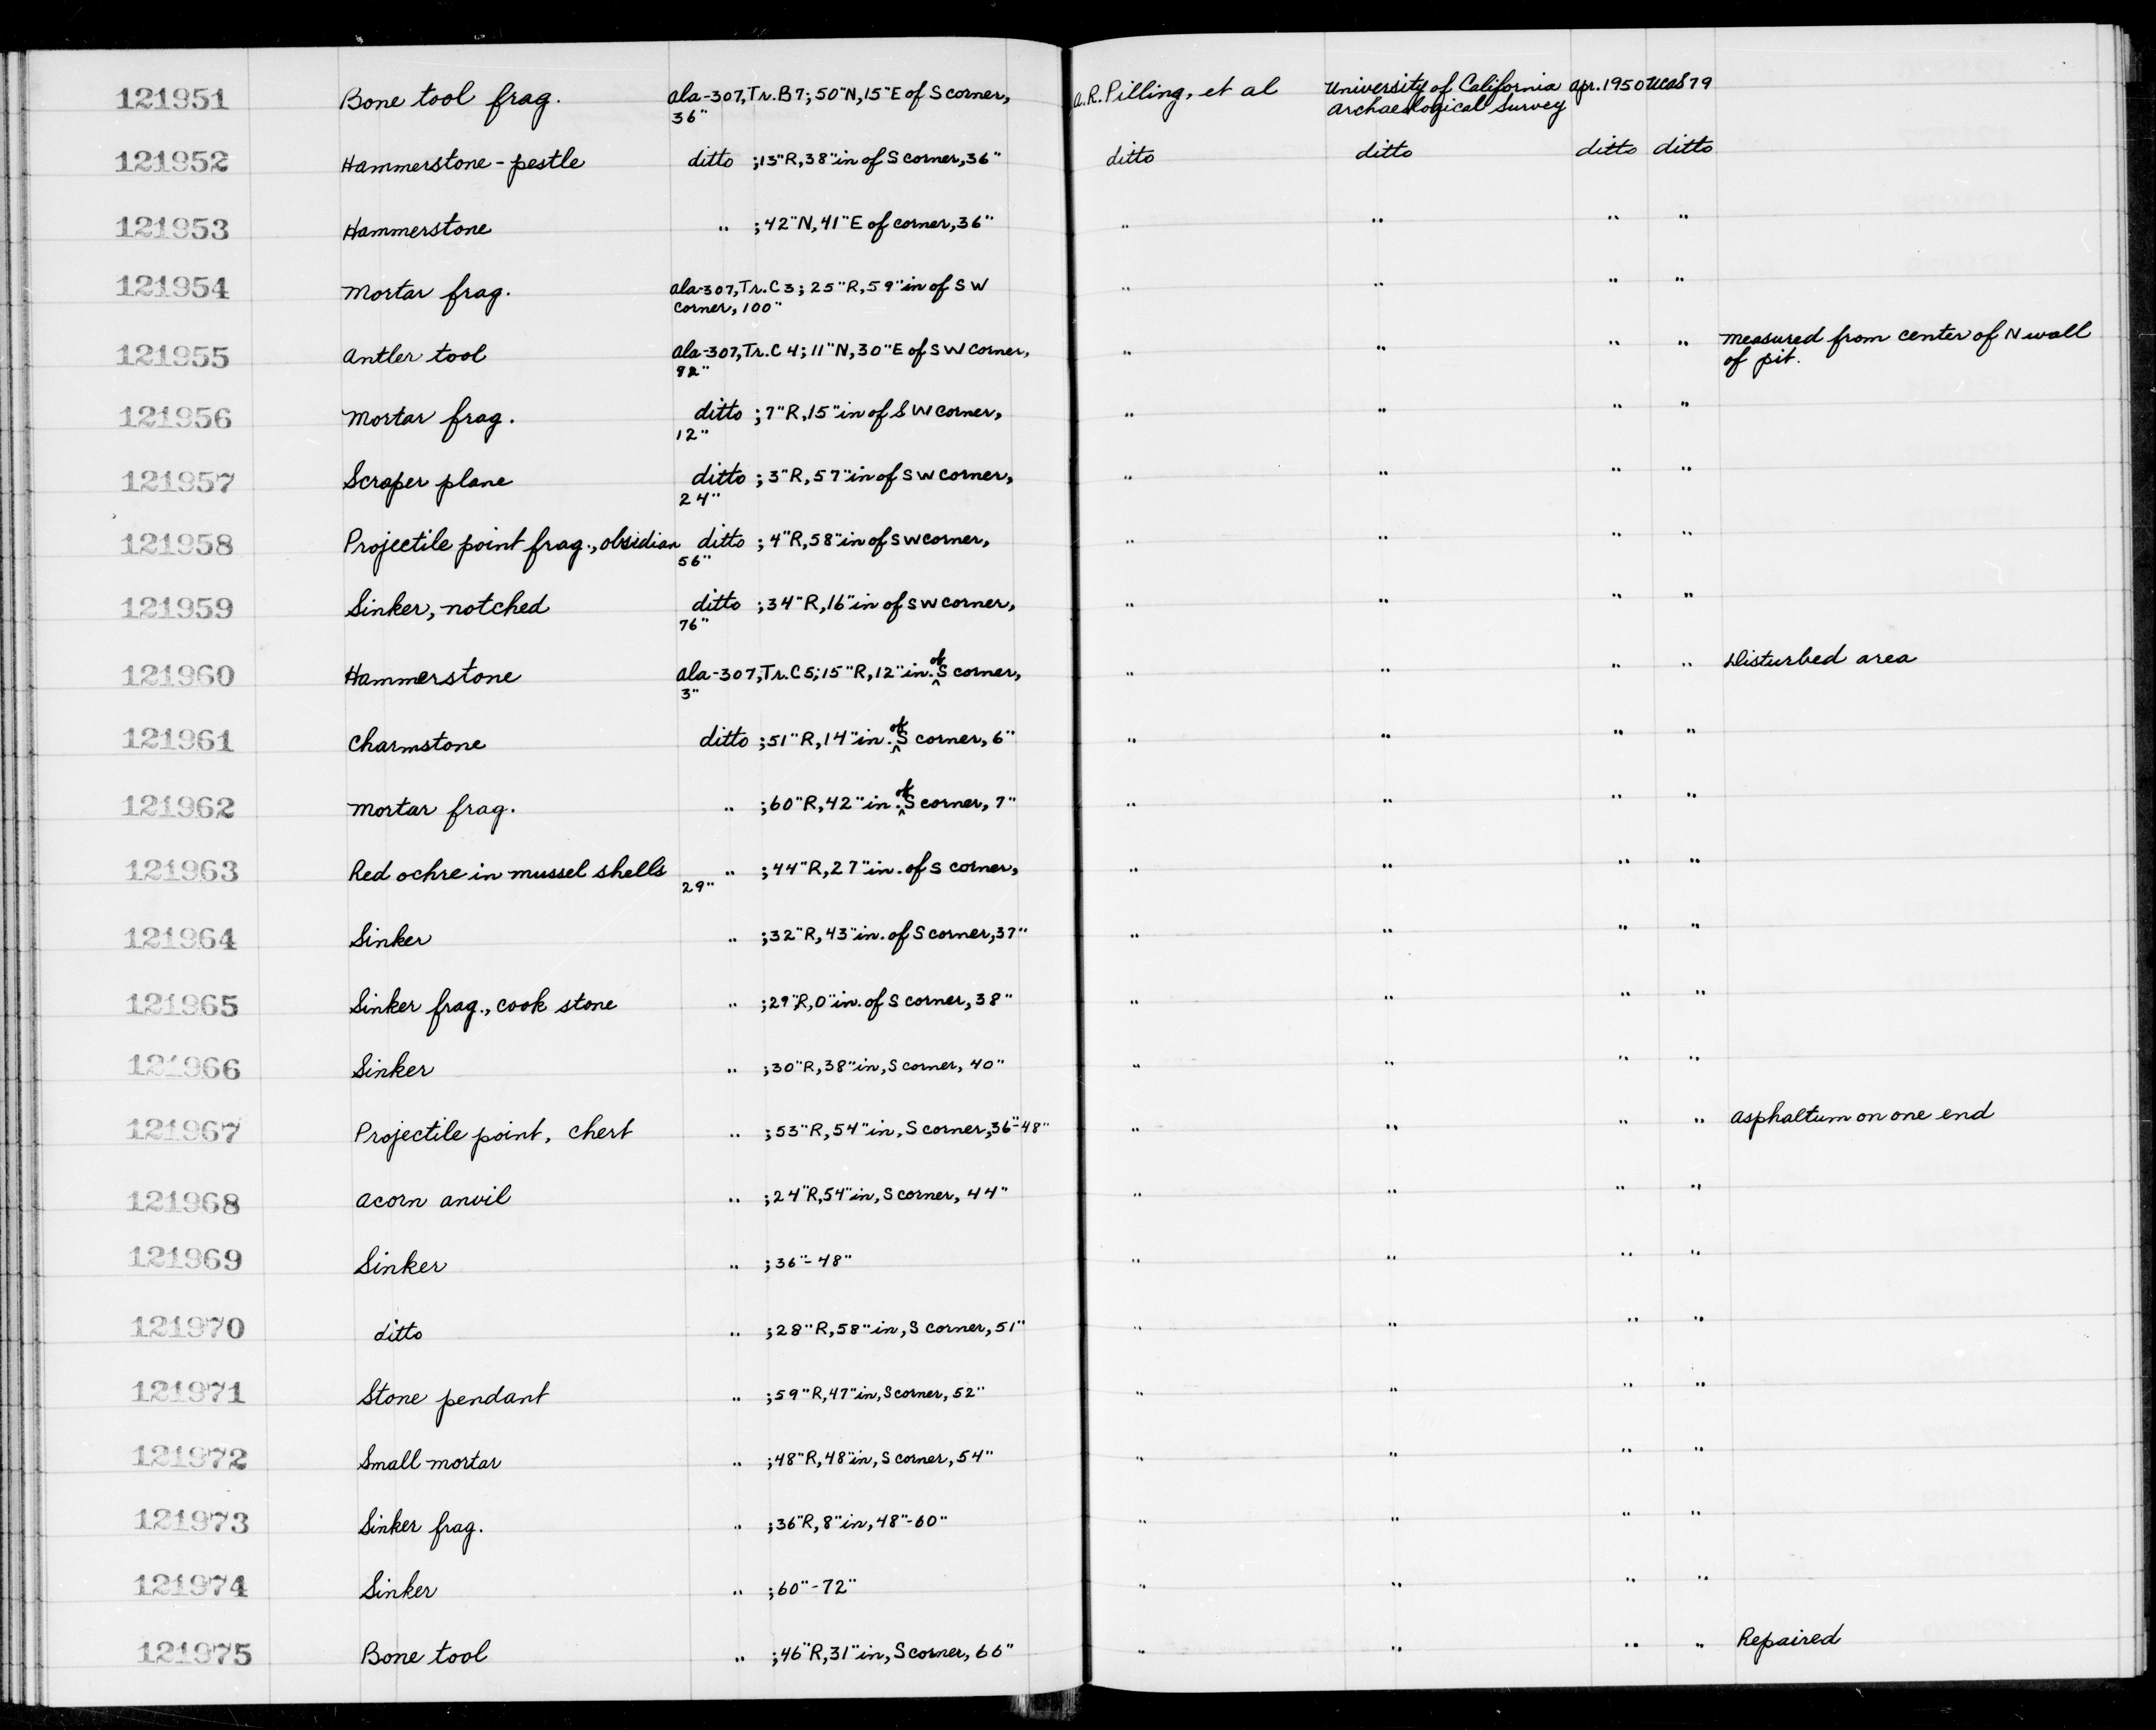 121951 Bone tool frag. Ala-307,Tr.B7; 50"N,15"E of S corner, A.R.Pilling, et al University of California Apr.1950 UCAS 79
36" Archaeological Survey
121952 Hammerstone-pestle ditto ;13"R,38"in of S corner,36" ditto ditto ditto ditto
121953 Hammerstone " ;42"N,41"E of corner,36" " " " "
121954 Mortar frag. Ala-307,Tr.C3; 25"R,59"in of SW " " " "
corner, 100"
121955 Antler tool Ala-307,Tr.C4; 11"N,30"E of SW corner, " " " " Measured from center of N wall
92" of pit.
121956 Mortar frag. ditto ; 7"R,15"in of SW corner, " " " "
12"
121957 Scraper plane ditto ; 3"R,57"in of SW corner, " " " "
24"
121958 Projectile point frag., obsidian ditto ; 4"R,58"in of SW corner, " " " "
56"
121959 Sinker, notched ditto ;34"R,16"in of SW corner, " " " "
76"
121960 Hammerstone Ala-307,Tr.C5;15"R,12"in. of S corner, " " " " Disturbed area
3"
121961 Charmstone ditto ;51"R,14"in. of S corner, 6" " " " "
121962 Mortar frag. " ;60"R,42"in. of S corner, 7" " " " "
121963 Red ochre in mussel shells " ;44"R,27"in. of S corner, " " " "
29"
121964 Sinker " ;32"R,43"in. of S corner,37" " " " "
121965 Sinker frag., cook stone " ;29"R,0"in. of S corner, 38" " " " "
121966 Sinker " ;30"R,38"in, S corner, 40" " " " "
121967 Projectile point, chert " ;53"R,54"in, S corner,36"-48" " " " " Asphaltum on one end
121968 Acorn anvil " ;24"R,54"in, S corner, 44" " " " "
121969 Sinker " ;36"-48" " " " "
121970 ditto " ;28"R,58"in, S corner, 51" " " " "
121971 Stone pendant " ;59"R,47"in, S corner, 52" " " " "
121972 Small mortar " ;48"R,48"in, S corner, 54" " " " "
121973 Sinker frag. " ;36"R,8"in, 48"-60" " " " "
121974 Sinker " ;60"-72" " " " "
121975 Bone tool " ;46"R,31"in, S corner, 66" " " " " Repaired